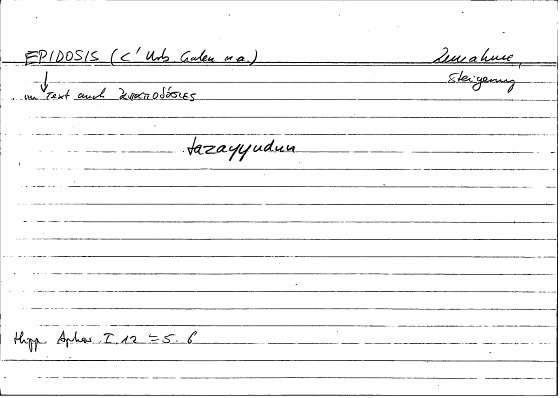 EPIDOSIS (C' Urb Galen u.a.) Zunahme,
Steigerung
im Text auch
tazayyudun
Hipp. Aphor. I 12 = 5. 6